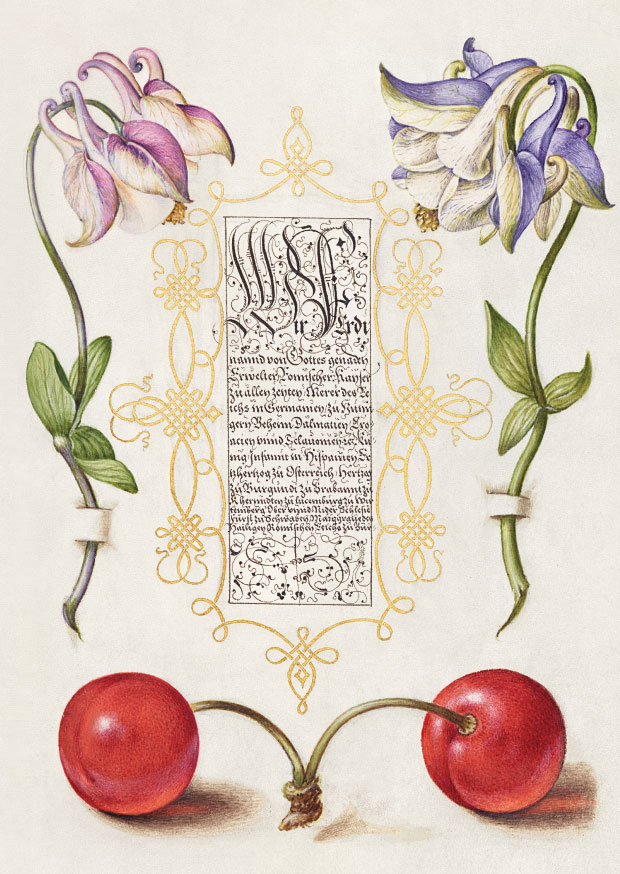 Wir Ferdi
nannd von Gottes genaden
Erwelter Römischer Kayser
zu allen zeyten Merer des Re
ichs in Germanien, zu Hun
gern Beheim Dalmatien, Cro
acien vnnd Sclauonien &c. Kü
nig Infannt in Hispanien, Er
tzhertzog zu Osterreich Hertzog
zu Burgundi zu Brabannt zu
zu Lucemburg zu Wir
temberg Ober vnnd Nider Schlesie
Fürst zu Schwaben Marggraue des
Hailigen Römischen Reichs zu Bur